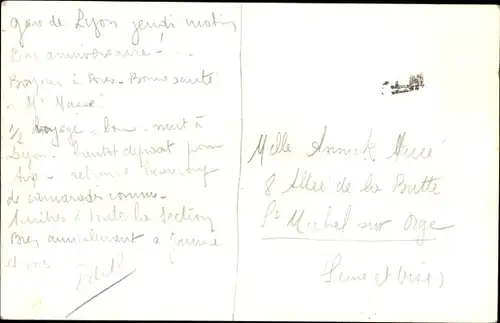 gare de Lyon jeudi matin
Bon anniversaire - - -
Bonjour à tous - Bonne santé
à Mr
1/2 voyage = bon - nuit à
Lyon - bientôt départ pour
- retrouvé beaucoup
de camarades connus -
Amitiés à toute la Section
Bien amicalement a
et
Melle Annick
8 Allée de la Butte
St Michel sur Orge
(Seine et Oise)